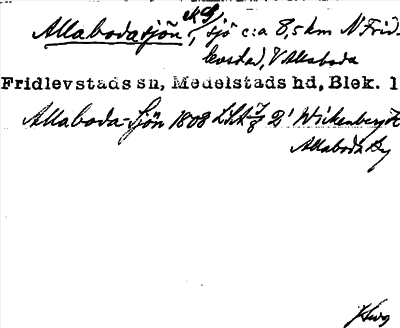 Allabodasjön, sjö c:a 8,5 km N Frid-
levstad, V Allaboda
Fridlevstads sn, Medelstads hd, Blek. l
Allaboda-Sjön 1808 2' Wickenberg
Allaboda By